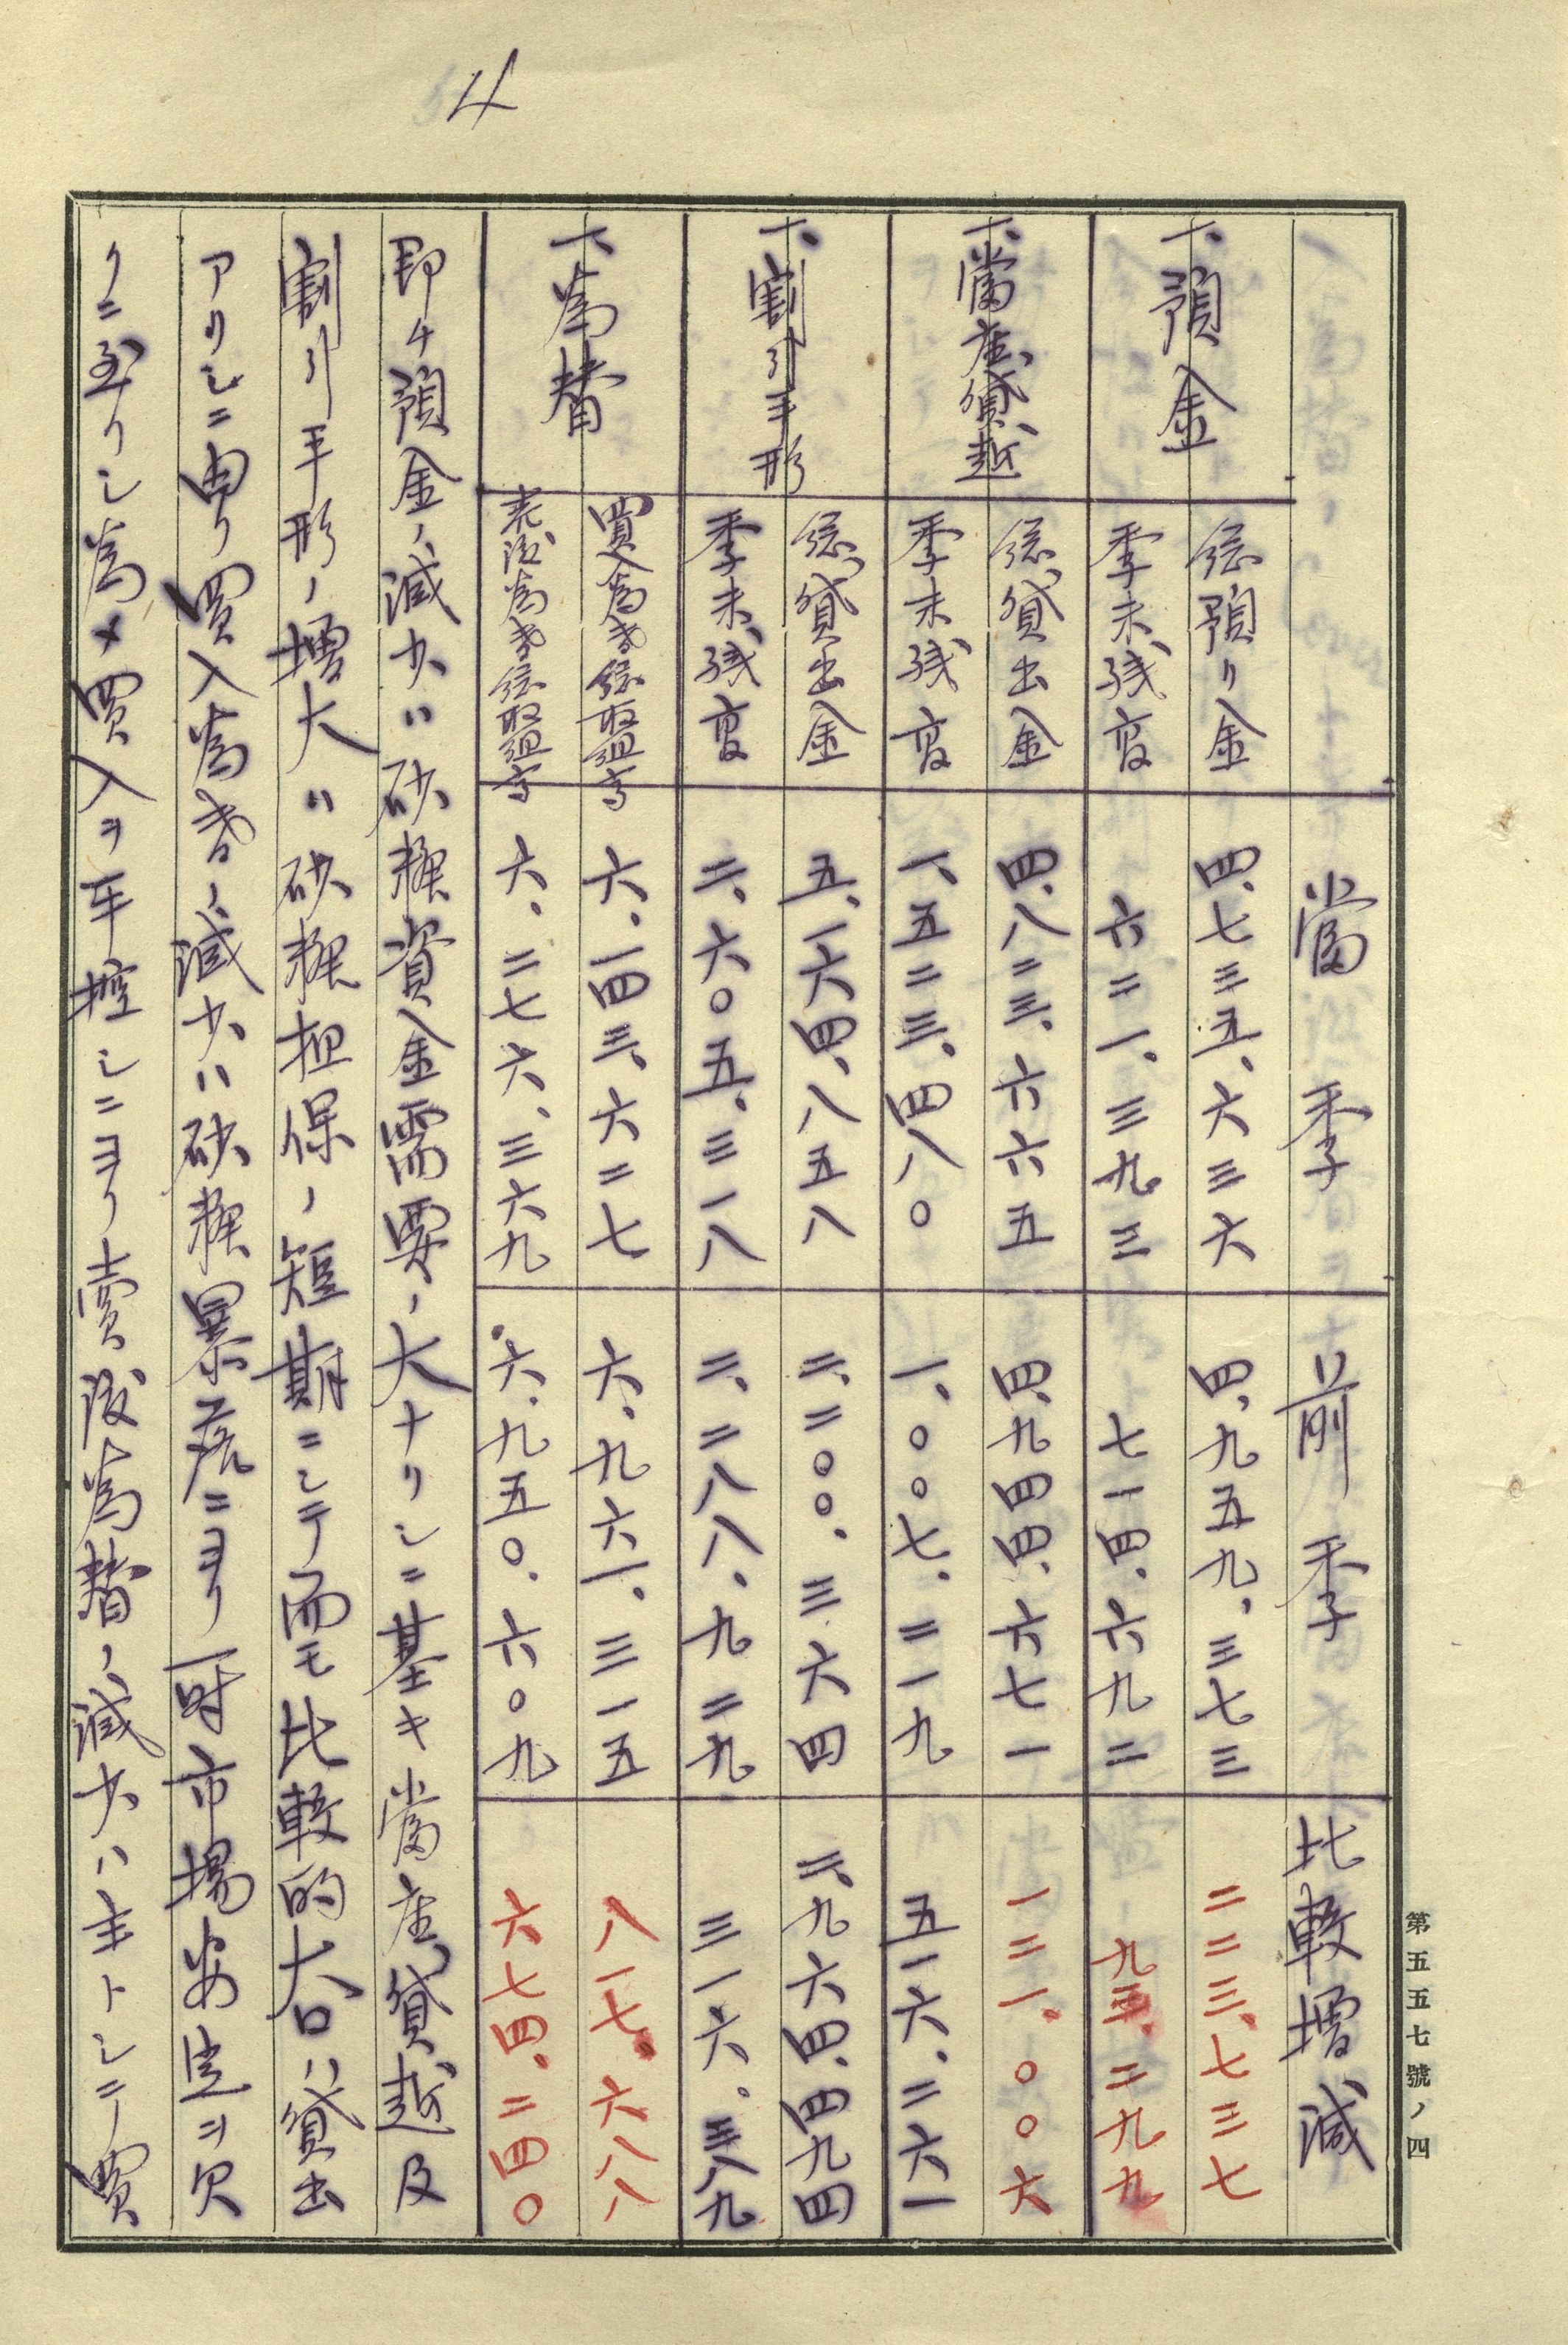 4
當季 前季 比較増減
一、預金
總預リ金 四、七三五、六三六 四、九五九、三七三 二二三、七三七
季末残高 六二一、三九三 七一四、六九二 九三、二九九
一、當座貸越
總貸出金 四、八二三、六六五 四、九四四、六七一 一二一、〇〇六
季末残高 一、五二三、四八〇 一、〇〇七、二一九 五一六、二六一
一、割引手形
總貸出金 五、一六四、八五八 二、二〇〇、三六四 二、九六四、四九四
季末残高 二、六〇五、三一八 二、二八八、九二九 三一六、三八九
一、為替
買入為替總取組高 六、一四三、六二七 六、九六一、三一五 八一七、六八八
賣渡為替總取組高 六、二七六、三六九 六、九五〇、六〇九 六七四、二四〇
即チ預金ノ減少ハ砂糖資金需要ノ大ナリシニ基キ當座貸越及
割引手形ノ増大ハ砂糖担保ノ短期ニシテ而モ比較的大口ノ貸出
アリシニ由リ買入為替ノ減少ハ砂糖暴落ニヨリ一時市場安定ヲ欠
クニ至リシ為メ買入ヲ手控シニヨリ賣渡為替ノ減少ハ主トシテ買
第五五七號ノ四